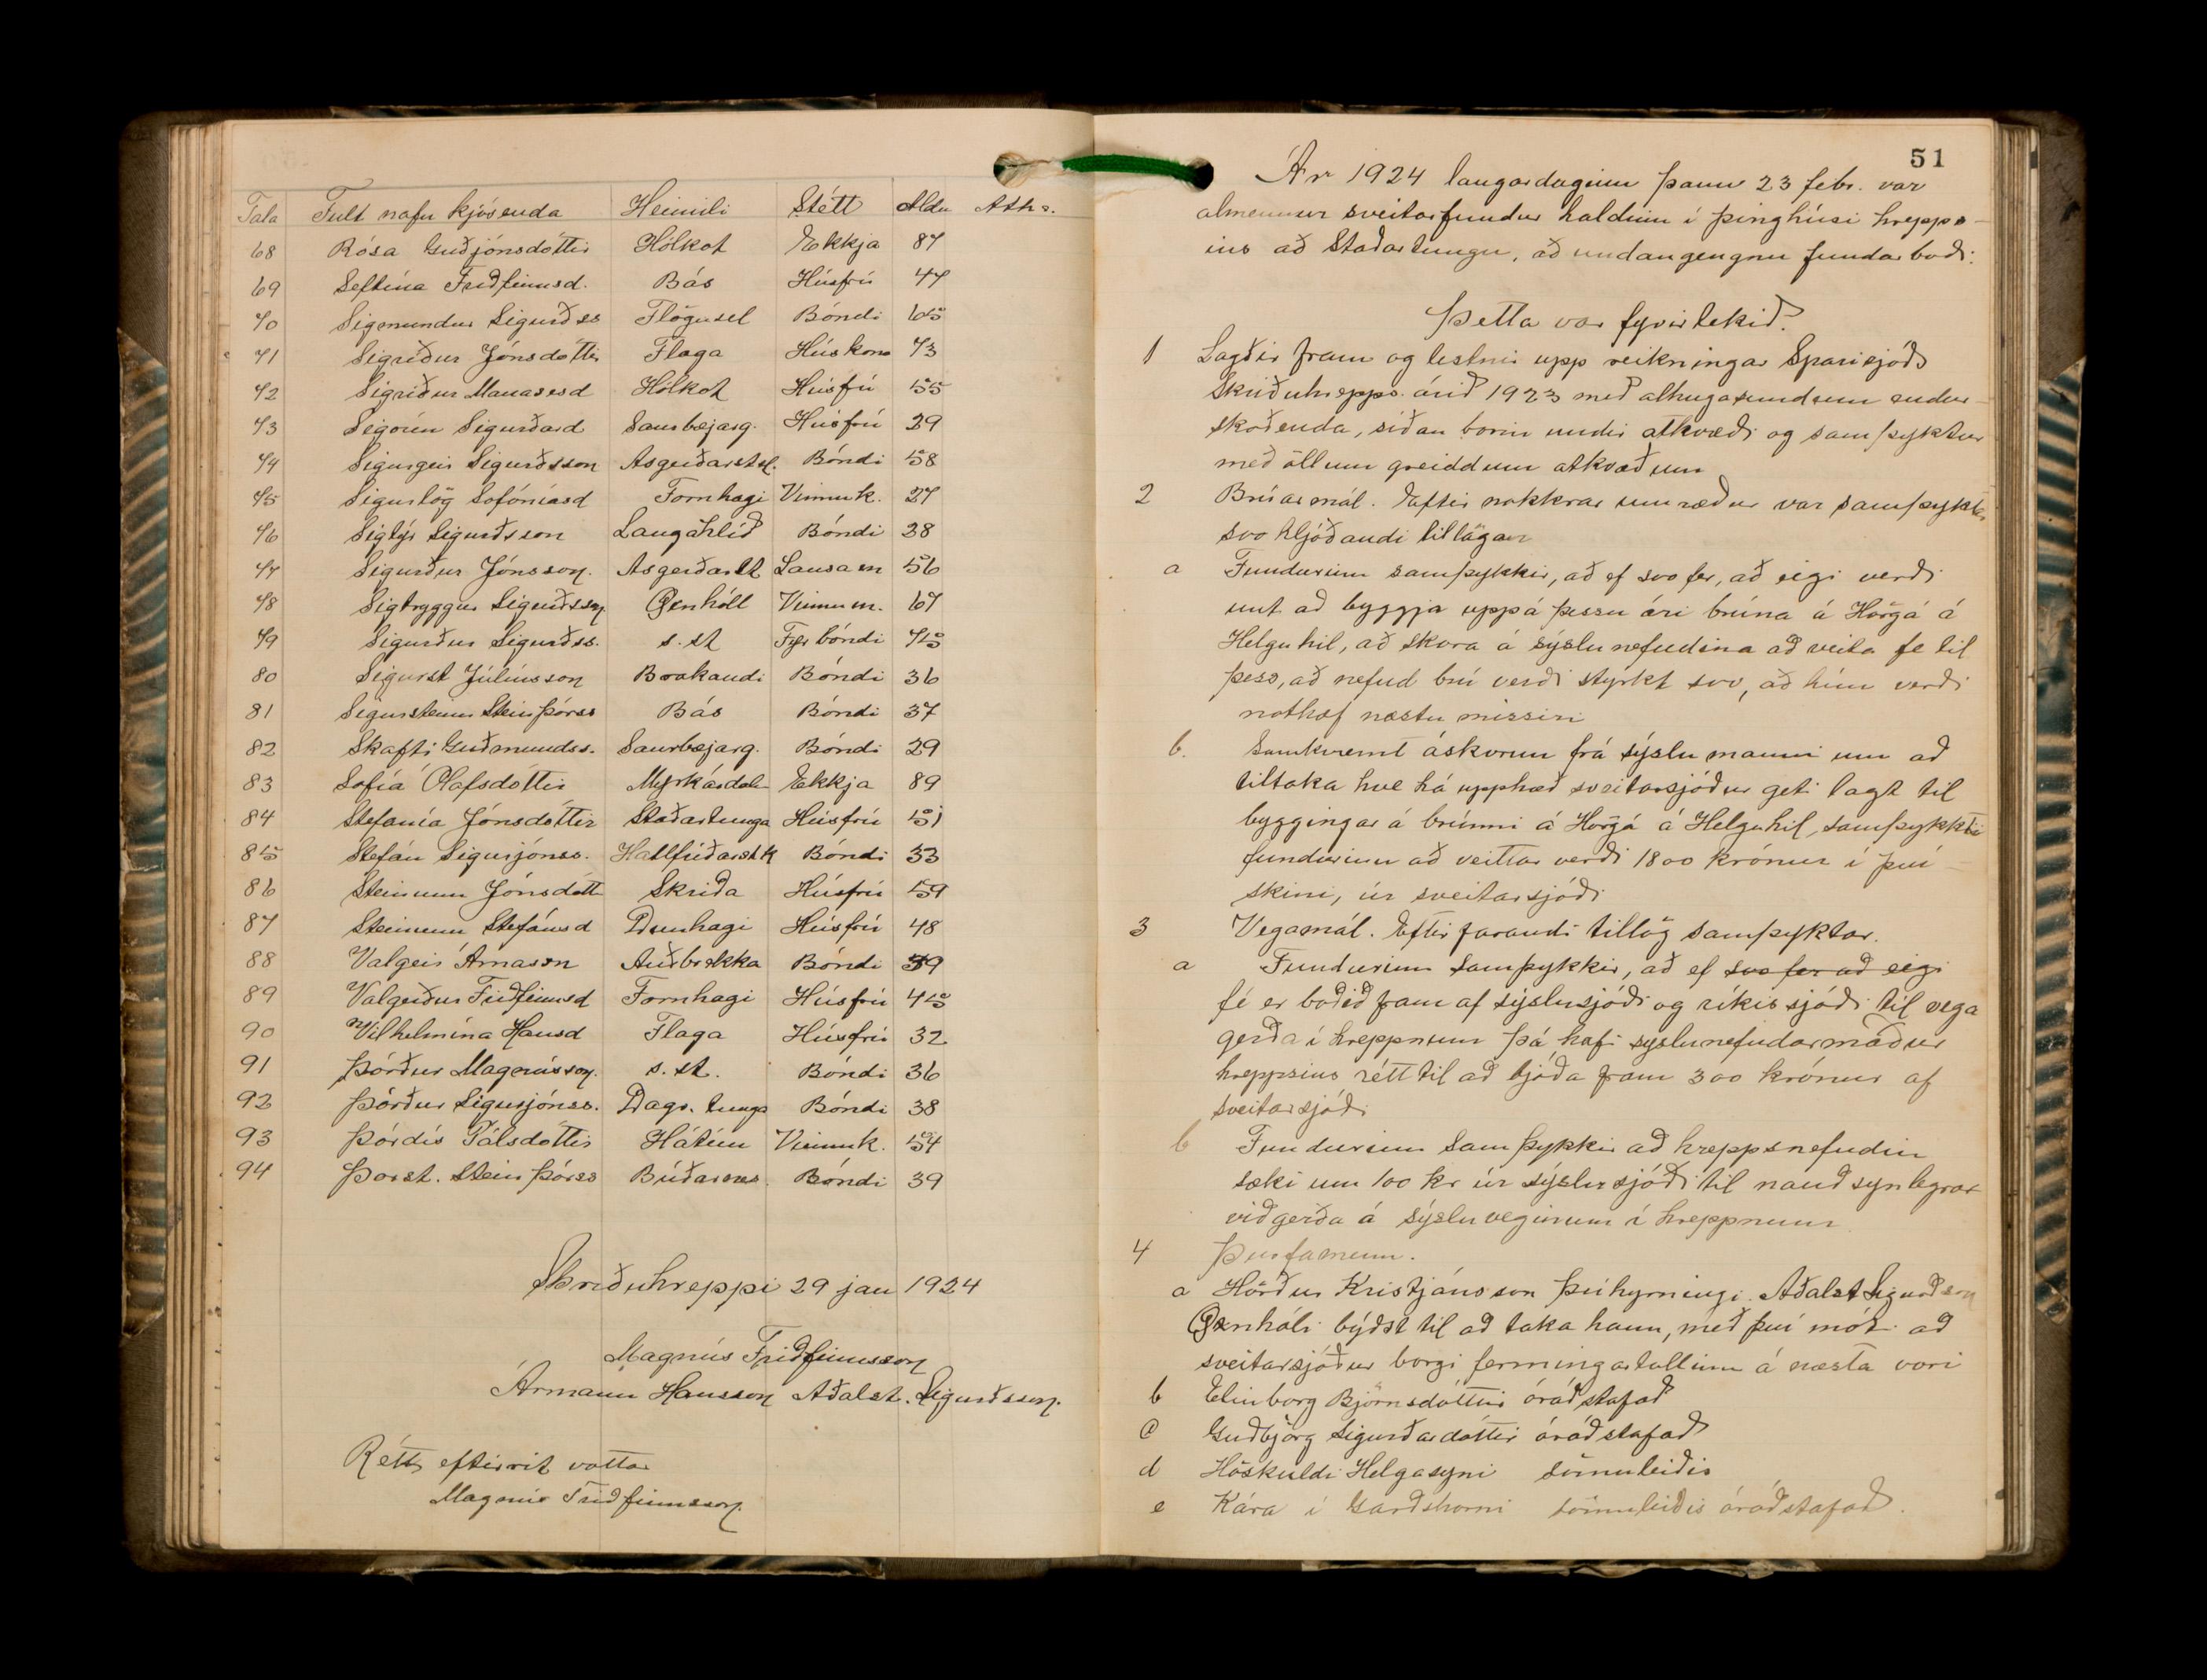 Tala Fult nafn kjósenda Heimili Stétt Aldur Aths.
68 Rósa Guðjónsdóttir Hólkot Ekkja 87
69 Seftína Friðfinnsd. Bás Húsfrú 47
70 Sigmundur Sigurðss Flögusel Bóndi 65
71 Sigríður Jónsdóttir Flaga Húskona 73
72 Sigríður Manasesd Hólkot Húsfrú 55
73 Sigrún Sigurðard Saurbæjarg. Húsfrú 29
74 Sigurgeir Sigurðsson Asgerðarst. Bóndi 58
75 Sigurlög Sofóníasd Fornhagi Vinnuk. 27
76 Sigtýr Sigurðsson Langahlíð Bóndi 28
77 Sigurður Jónsson. Asgerðarst Lausam 56
78 Sigtryggur Sigurðsson Öxnhóll Vinnum. 67
79 Sigurður Sigurðss. s.st Fyr bóndi 75
80 Sigurst Júlíusson Brakandi Bóndi 36
81 Sigursteinn Steinþórss Bás Bóndi 37
82 Skafti Guðmundss. Saurbæjarg. Bóndi 29
83 Sofía Ólafsdóttir Myrkárdal Ekkja 89
84 Stefanía Jónsdóttir Staðartunga Húsfrú 51
85 Stefán Sigurjónss. Hallfríðarstk Bóndi 33
86 Steinunn Jónsdótt Skriða Húsfrú 59
87 Steinunn Stefánsd Dunhagi Húsfrú 48
88 Valgeir Árnason Auðbrekka Bóndi 39
89 Valgerður Friðfinnsd Fornhagi Húsfrú 45
90 Vilhelmína Hansd Flaga Húsfrú 32
91 Þórður Magnússon. s.st. Bóndi 36
92 Þórður Sigurjónss. Dags. tunga Bóndi 38
93 Þórdís Pálsdóttir Hátún Vinnuk. 54
94 Þorst. Steinþórss Búðarnes. Bóndi 39
Skriðuhreppi 29 jan 1924
Magnús Friðfinnsson
Ármann Hansson Aðalst. Sigurðsson.
Rétt eftirrit vottar
Magnús Friðfinnsson.
51
Ár 1924 laugardaginn þann 23 febr. var
almennur sveitarfundur haldinn í þinghúsi hrepps-
ins að Staðartungu, að undangengnu fundarboði.
Þetta var fyrirtekið.
1 Lagðir fram og lestnir upp reikningar Sparisjóðs
Skriðuhrepps árið 1923 með athugasemdum endur-
skoðenda, síðan bornir undir atkvæði og samþyktur
með öllum greiddum atkvæðum
2 Brúarmál. Eftir nokkrar umræður var samþykktar
svo hljóðandi tillögur
a Fundurinn samþykkir, að ef svo fer, að eigi verði
unt að byggja upp á þessu ári brúna á Hörgá á
Helguhil, að skora á sýslunefndina að veita fe til
þess, að nefnd brú verði styrkt svo, að hún verði
nothæf næstu missiri
b. Samkvæmt áskorun frá sýslumanni um að
tiltaka hve há upphæð sveitarsjóður geti lagt til
byggingar á brúnni á Hörgá á Helguhil, samþykkti
fundurinn að veittar verði 1800 krónur í því-
skini, úr sveitarsjóði
3 Vegamál. Eftirfarandi tillög samþyktar.
a Fundurinn samþykkir, að ef svo fer að eigi
fé er boðið fram af sýslusjóði og ríkissjóði til vega
gerða í hreppnum þá hafi sýslunefndarmaður
hreppsins rétt til að bjóða fram 300 krónur af
sveitarsjóði
b Fundurinn samþykkir að hreppsnefndin
sæki um 100 kr úr sýslusjóði til nauðsynlegrar
viðgerða á sýsluveginum í hreppnum
4 Þurfamenn.
a Hörður Kristjánsson Þríhyrningi. Aðalst Sigurðsson
Öxnhóli býðst til að taka hann, með því móti að
sveitarsjóður borgi fermingartollinn á næsta vori
b Elinborg Björnsdóttir óráðstafað
c Guðbjörg Sigurðardóttir óráðstafað
d Höskuldi Helgasyni sömuleiðis
e Kára í Garðshorni sömuleiðis óráðstafað.